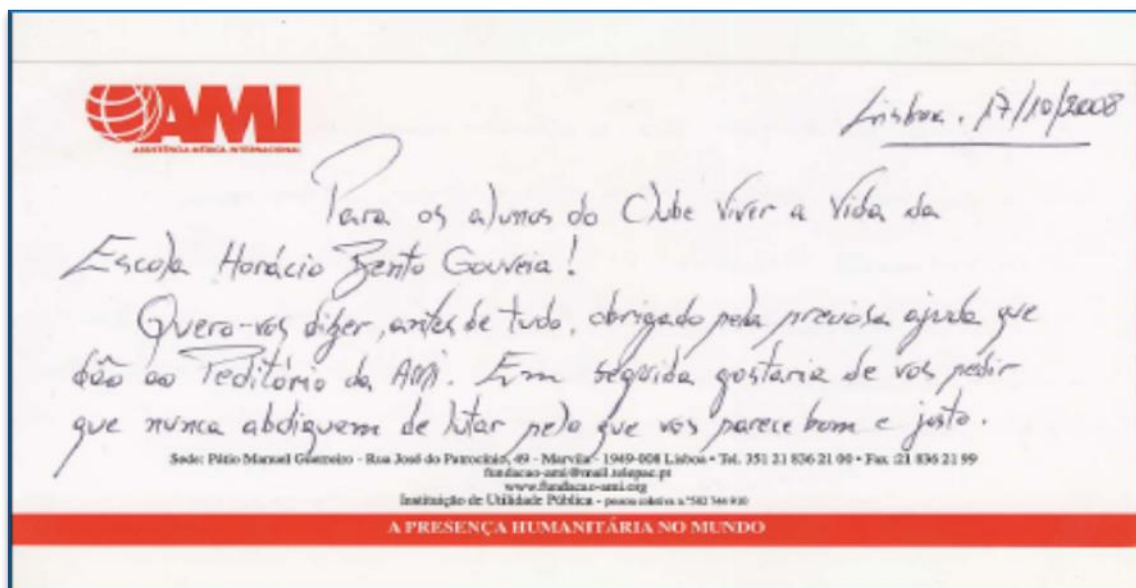 AMI
ASSISTÊNCIA MÉDICA INTERNACIONAL
Lisboa, 17/10/2008
Para os alunos do Clube Viver a Vida da
Escola Horácio Bento Gouveia!
Quero-vos dizer, antes de tudo, obrigado pela preciosa ajuda que
dão ao Peditório da AMI. Em seguida gostaria de vos pedir
que nunca abdiquem de lutar pelo que vos parece bom e justo.
Sede: Pátio Manuel Guerreiro - Rua José do Patrocínio, 49 - Marvila - 1949-008 Lisboa • Tel. 351 21 836 21 00 • Fax :21 836 21 99
fundacao-ami@mail.telepac.pt
www.fundacao-ami.org
Instituição de Utilidade Pública - pessoa coletiva n.º502 744 910
A PRESENÇA HUMANITÁRIA NO MUNDO